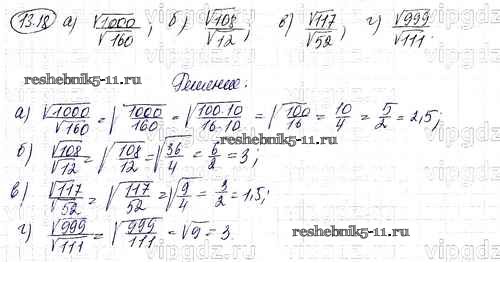 13.18 а) √1000/√160; б) √108/√12; в) √117/√52; г) √999/√111.
reshebnik5-11.ru
vipgdz.ru
Решение.
reshebnik5-11.ru
а) √1000/√160 = √(1000/160) = √(100·10/16·10) = √(100/16) = 10/4 = 5/2 = 2,5;
reshebnik5-11.ru
б) √108/√12 = √(108/12) = √(36/4) = 6/2 = 3;
в) √117/√52 = √(117/52) = √(9/4) = 3/2 = 1,5;
г) √999/√111 = √(999/111) = √9 = 3
reshebnik5-11.ru
vipgdz.ru